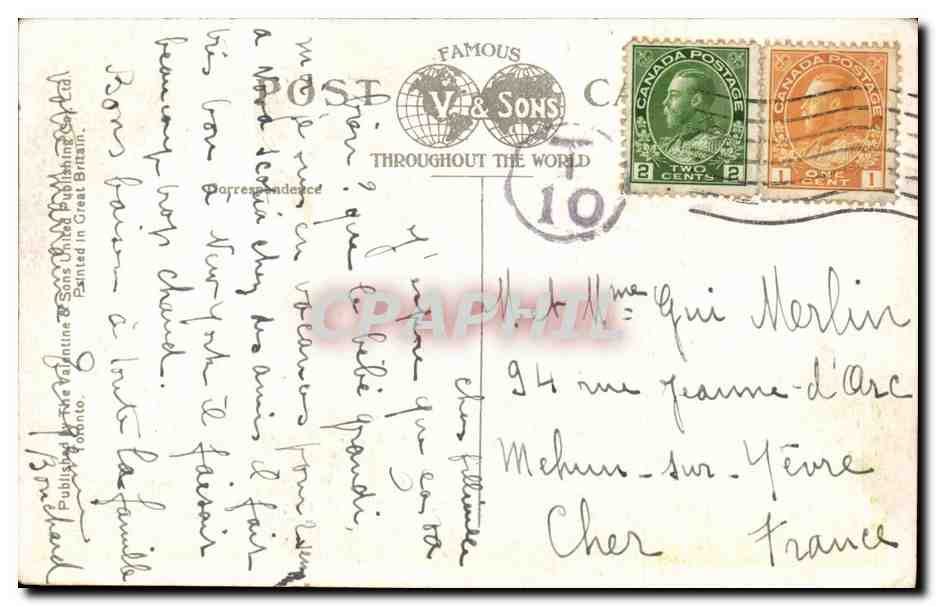 FAMOUS
V. & SONS
THROUGHOUT THE WORLD
POST CA
Correspondence
CANADA POSTAGE
2 TWO CENTS 2
CANADA POSTAGE
1 ONE CENT 1
T
10
M. et Mme Gui Merlin
94 rue Jeanne-d'Arc
Mehun-sur-Yèvre
Cher France
chers filleuls
J'espère que ça va
bien? que le bébé grandi,
moi je suis en vacances pour
a Nova Scotia chez des amis il fait
très bon à New York il faisait
beaucoup trop chaud.
Bons baisers à toute la famille
Bouchard
Published by The Valentine & Sons United Publishing Co., Ltd.
Toronto. Printed in Great Britain.
CPARAMA